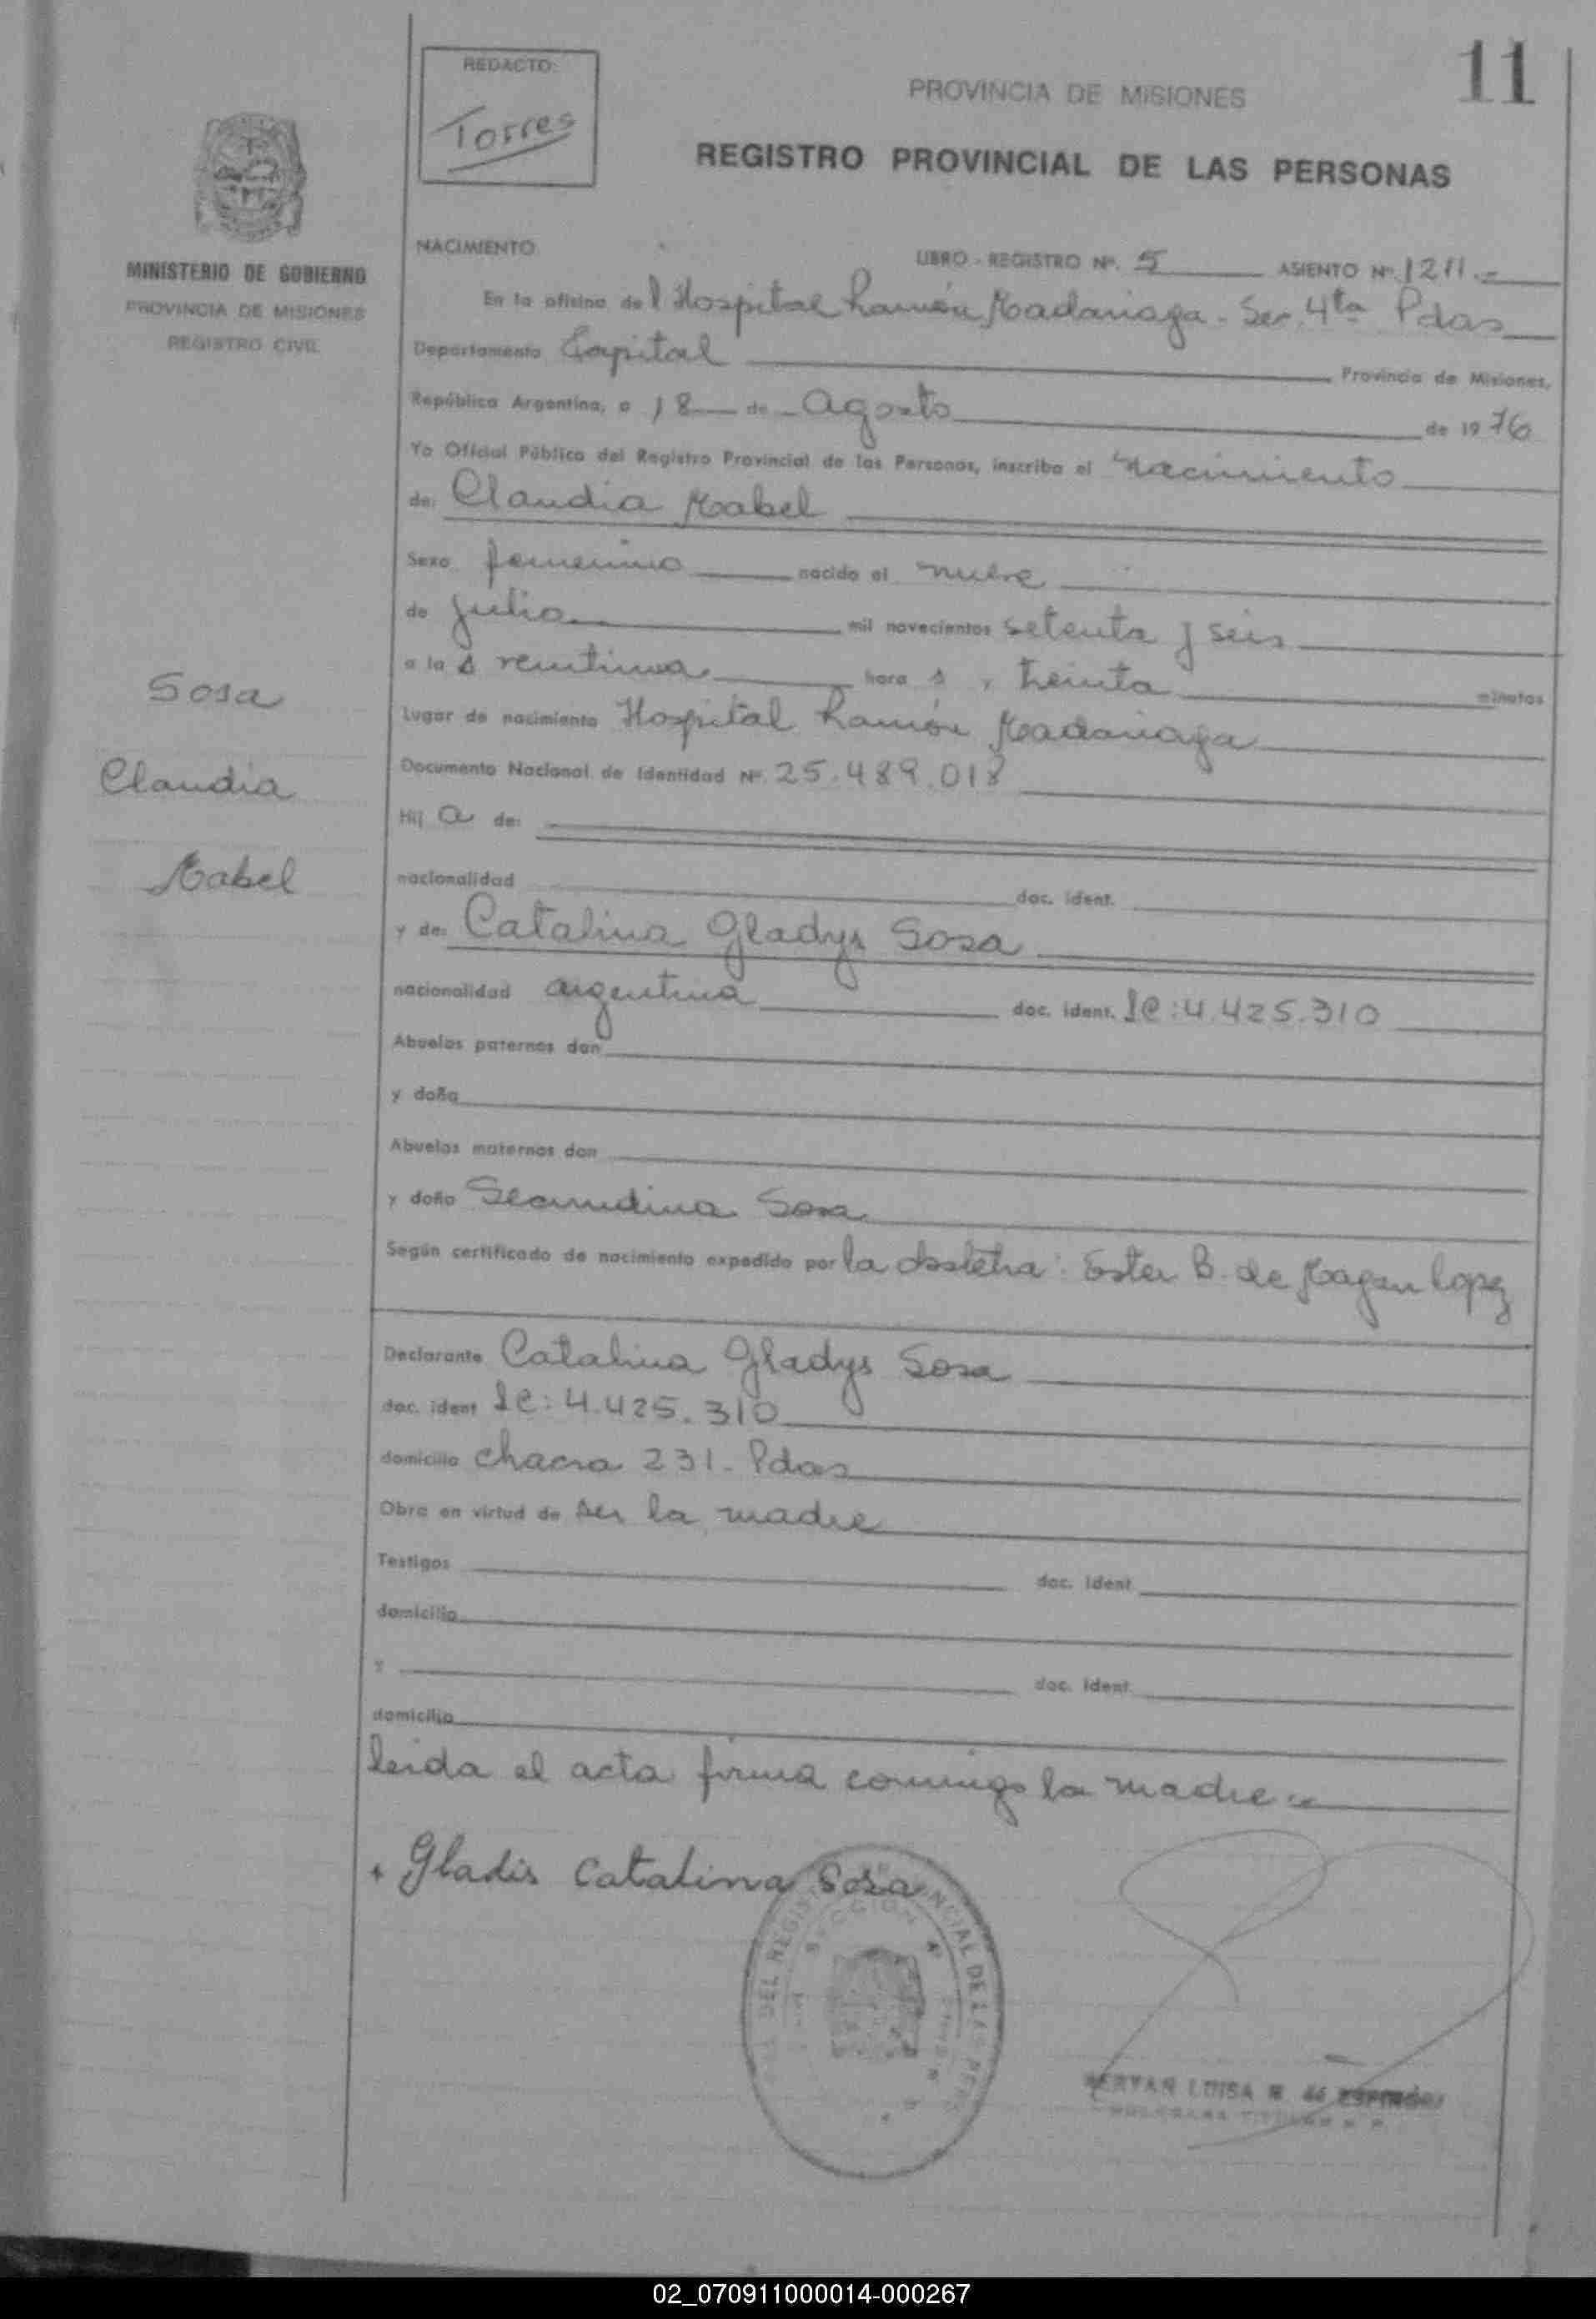 11
REDACTO:
Torres
PROVINCIA DE MISIONES
REGISTRO PROVINCIAL DE LAS PERSONAS
MINISTERIO DE GOBIERNO
PROVINCIA DE MISIONES
REGISTRO CIVIL
NACIMIENTO
LIBRO - REGISTRO Nº. 5 ASIENTO Nº. 1211.=
En la oficina del Hospital Ramón Madariaga - Sec. 4ta Pdas
Departamento Capital Provincia de Misiones,
República Argentina, a 18 de Agosto de 1976
Yo Oficial Público del Registro Provincial de las Personas, inscribo el Nacimiento
de: Claudia Mabel
Sexo femenino nacido el nueve
de julio mil novecientos setenta y seis
a las veintiuna horas y treinta minutos
Lugar de nacimiento Hospital Ramón Madariaga
Documento Nacional de Identidad Nº 25.489.018
Hija de:
nacionalidad doc. ident.
y de: Catalina Gladys Sosa
nacionalidad argentina doc. ident. LC: 4.425.310
Abuelos paternos don
y doña
Abuelos maternos don
y doña Secundina Sosa
Según certificado de nacimiento expedido por la obstetra: Ester B. de Lopez
Declarante Catalina Gladys Sosa
doc. ident LC: 4.425.310
domicilio chacra 231 - Pdas
Obra en virtud de ser la madre
Testigos doc. ident
domicilio
y doc. ident.
domicilio
leida el acta firma conmigo la madre
Sosa
Claudia
Mabel
Gladis Catalina Sosa
DEL REGISTRO PROVINCIAL DE LAS
SECCION 4ª
LUISA R. de ESPINDOLA
02_070911000014-000267